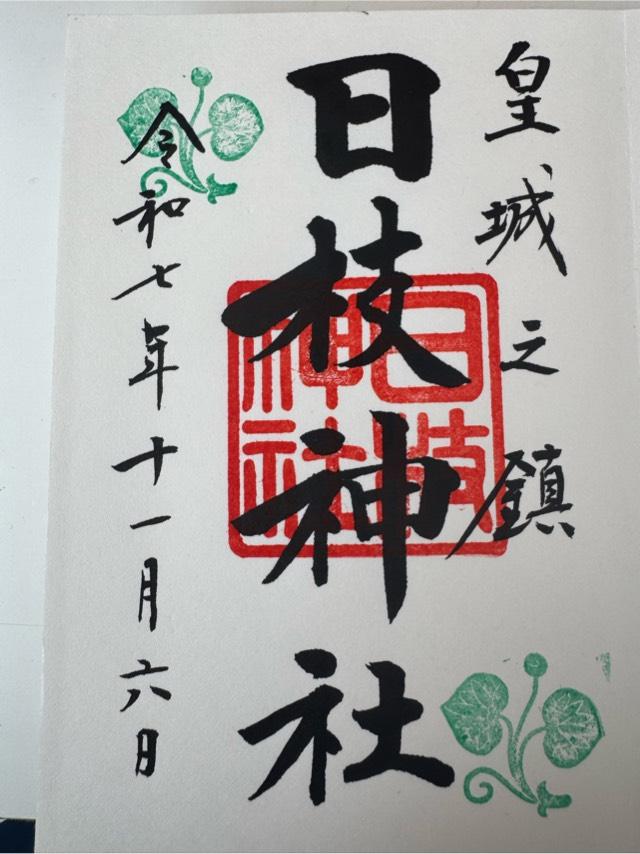 皇城之鎮
日枝神社
日枝神社
令和七年十一月六日